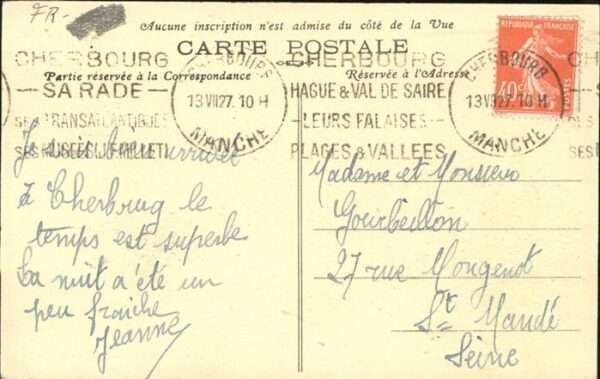 FR-
Aucune inscription n'est admise du côté de la Vue
CARTE POSTALE
Partie réservée à la Correspondance
Réservée à l'Adresse
CHERBOURG
SA RADE
SES TRANSATLANTIQUES
CHERBOURG
13 VII 27. 10 H
MANCHE
CHERBOURG
HAGUE & VAL DE SAIRE
LEURS FALAISES
PLAGES & VALLEES
CHERBOURG
13 VII 27. 10 H
MANCHE
REPUBLIQUE FRANÇAISE
40c
Je suis bien arrivée
à Cherbrug le
temps est superbe
La nuit a été un
peu fraiche
Jeanne
Madame et Monsieur
Gourbeillon
27 rue Mongenot
St Mandé
Seine